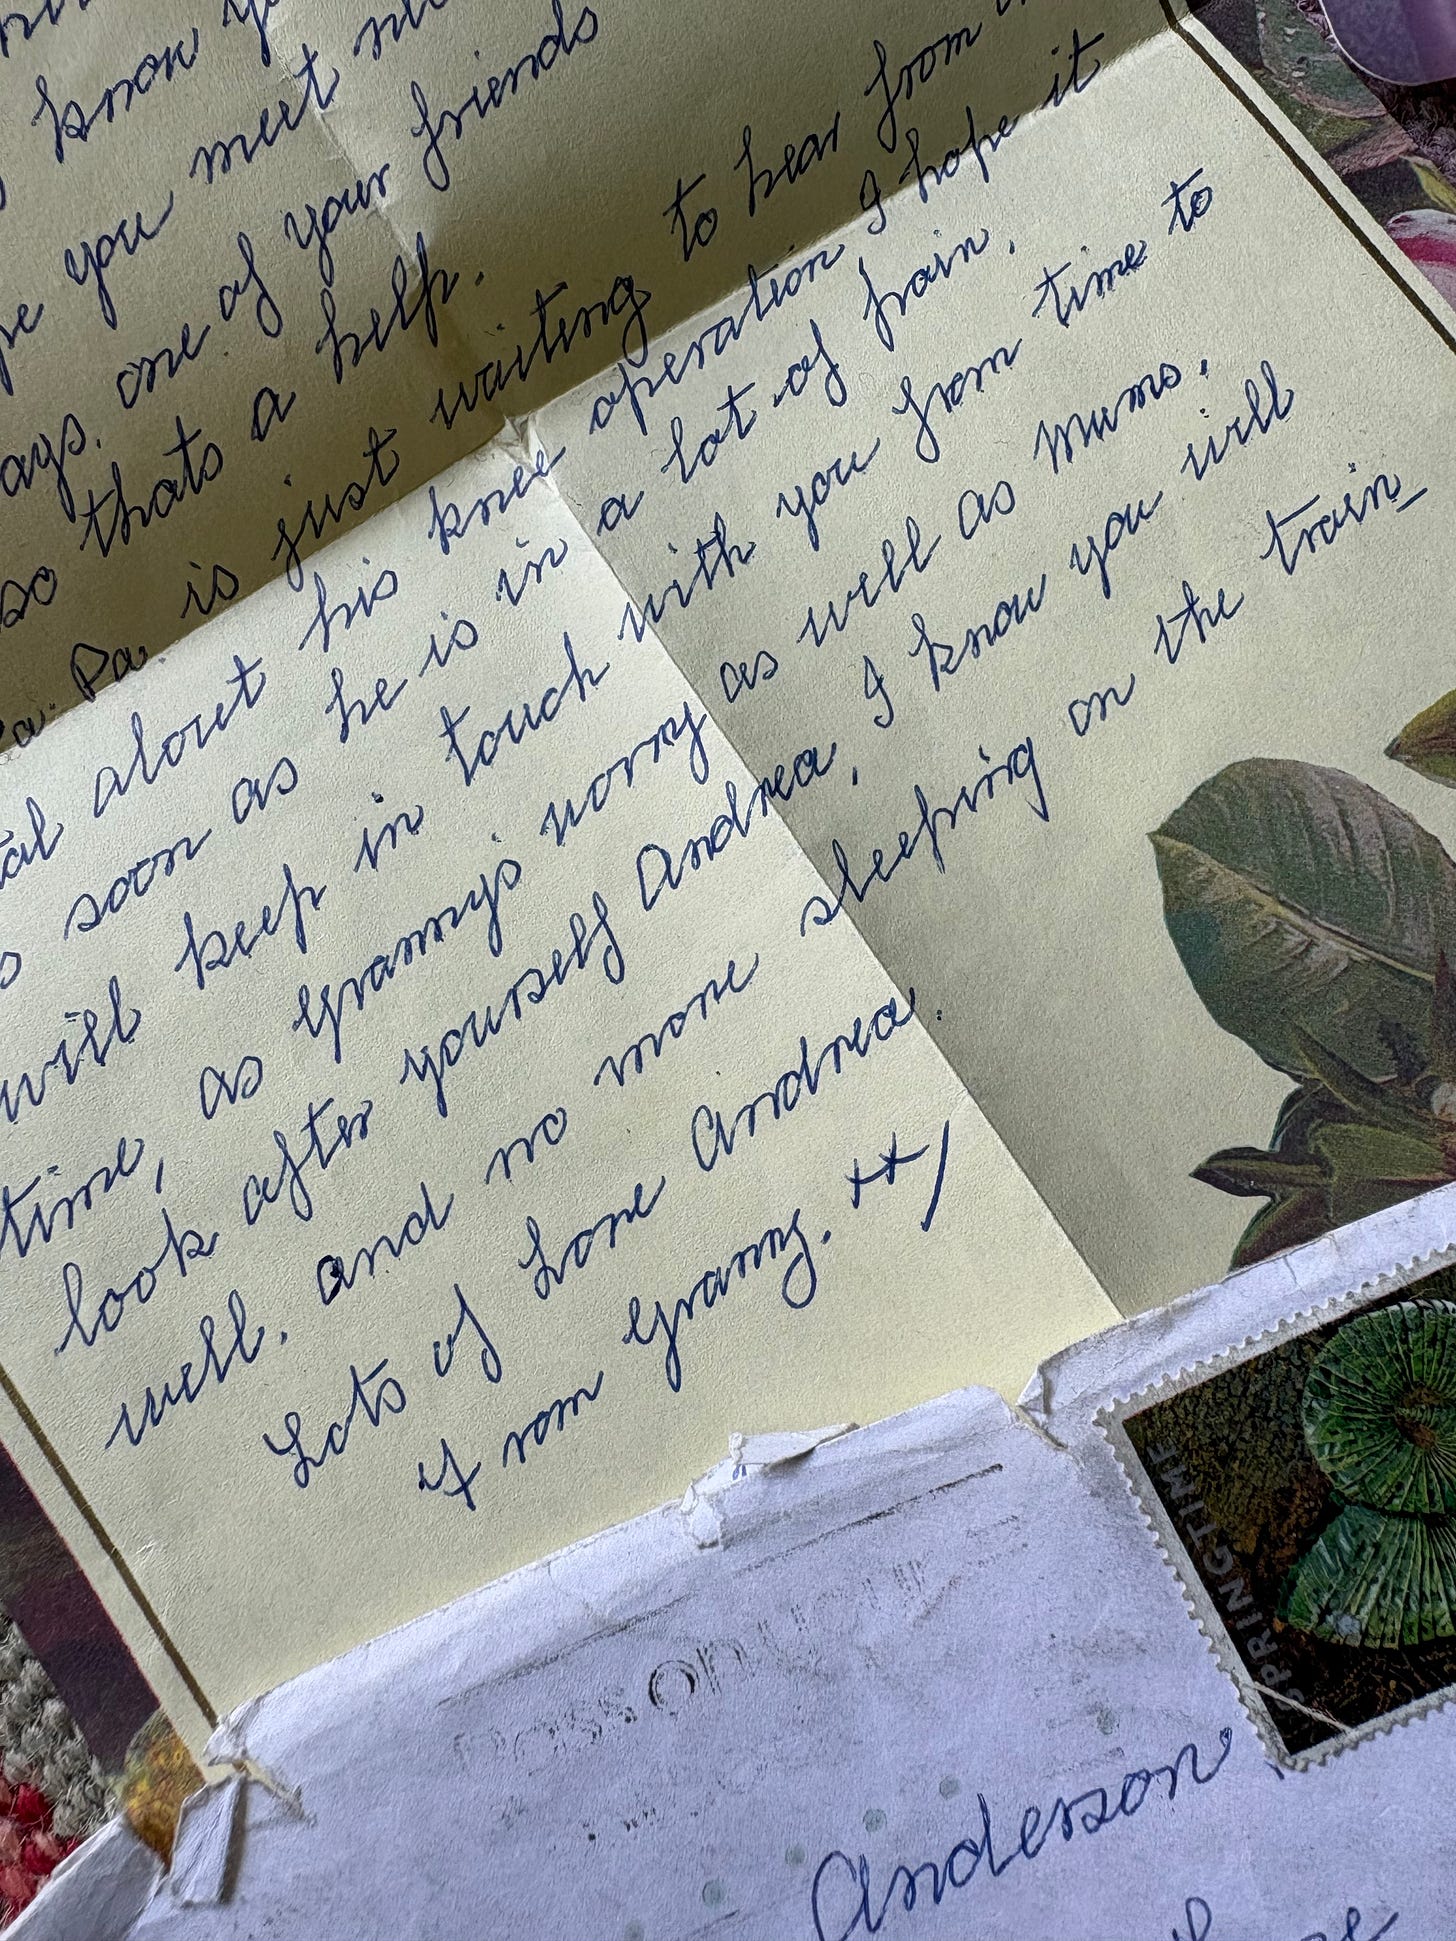 know
you meet
ays. one of your friends
so thats a help.
Pa. is just waiting to hear from
about his knee operation I hope it
soon as he is in a lot of pain.
will keep in touch with you from time to
time, as Grannys worry as well as Mums.
look after yourself Andrea, I know you will
well. and no more sleeping on the train_
Lots of Love Andrea.
From Granny. xx/
SPRINGTIME
Anderson